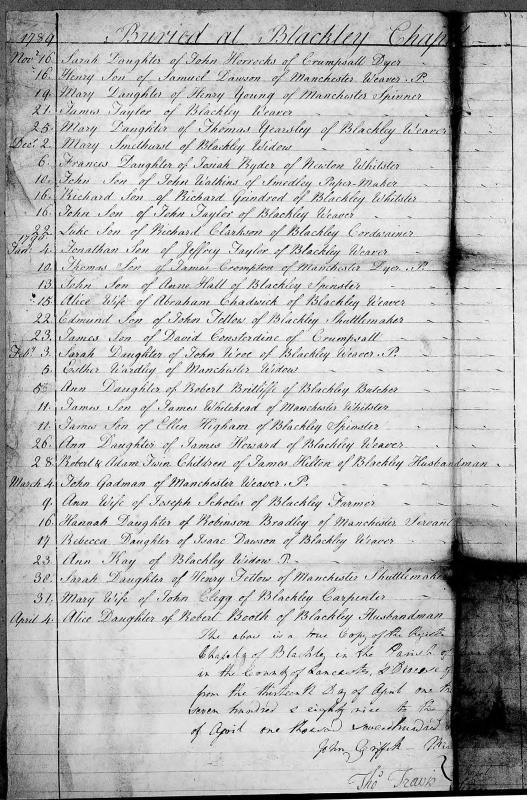 1789 Buried at Blackley Chapel
Novr 16 Sarah Daughter of John Horrocks of Crumpsall Dyer
16 Henry Son of Samuel Dawson of Manchester Weaver P.
19 Mary Daughter of Henry Young of Manchester Spinner
21 James Taylor of Blackley Weaver
25 Mary Daughter of Thomas Yearsley of Blackley Weaver
Decr 2 Mary Smethurst of Blackley Widow
6 Frances Daughter of Josiah Ryder of Newton Whitster
10 John Son of John Watkins of Smedley Paper-Maker
16 Richard Son of Richard Grindrod of Blackley Whitster
16 John Son of John Taylor of Blackley Weaver
22 Luke Son of Richard Clarkson of Blackley Cordwainer
1790
Janr 4 Jonathan Son of Jeffrey Taylor of Blackley Weaver
10 Thomas Son of James Crompton of Manchester Dyer P.
13 John Son of Anne Hall of Blackley Spinster
15 Alice Wife of Abraham Chadwick of Blackley Weaver
22 Edmund Son of John Fellow of Blackley Shuttlemaker
23 James Son of David Consterdine of Crumpsall
Febr 3 Sarah Daughter of John Wroe of Blackley Weaver P.
5 Esther Wardley of Manchester Widow
Ann Daughter of Robert Britliffe of Blackley Butcher
11 James Son of James Whitehead of Manchester Whitster
11 James Son of Ellen Higham of Blackley Spinster
26 Ann Daughter of James Howard of Blackley Weaver
28 Robert & Adam Twin Children of James Helton of Blackley Husbandman
March 4 John Gadman of Manchester Weaver P.
9 Ann Wife of Joseph Scholes of Blackley Farmer
16 Hannah Daughter of Robinson Bradley of Manchester Servant
17 Rebecca Daughter of Isaac Dawson of Blackley Weaver
23 Ann Kay of Blackley Widow P.
30 Sarah Daughter of Henry Fellows of Manchester Shuttlemaker
31 Mary Wife of John Clegg of Blackley Carpenter
April 4 Alice Daughter of Robert Booth of Blackley Husbandman
The above is a true Copy of the Register
Chapelry of Blackley in the Parish of
in the County of Lancaster, & Diocese of
from the thirteenth Day of April one
seven hundred & eighty nine to the
of April one thousand
John Griffith
Thos Travis